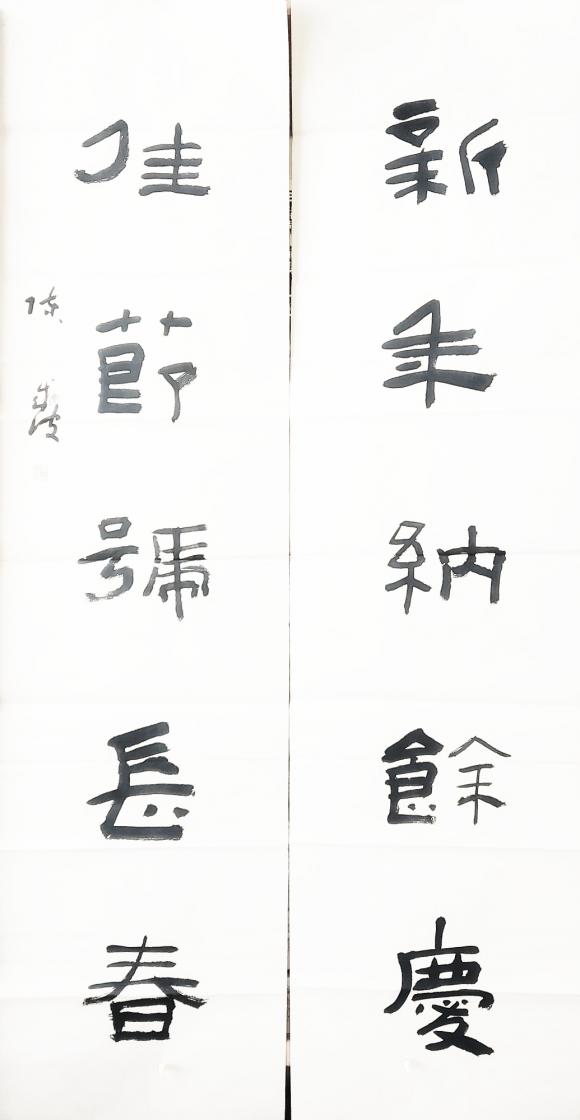 新年納餘慶
佳節號長春
陳